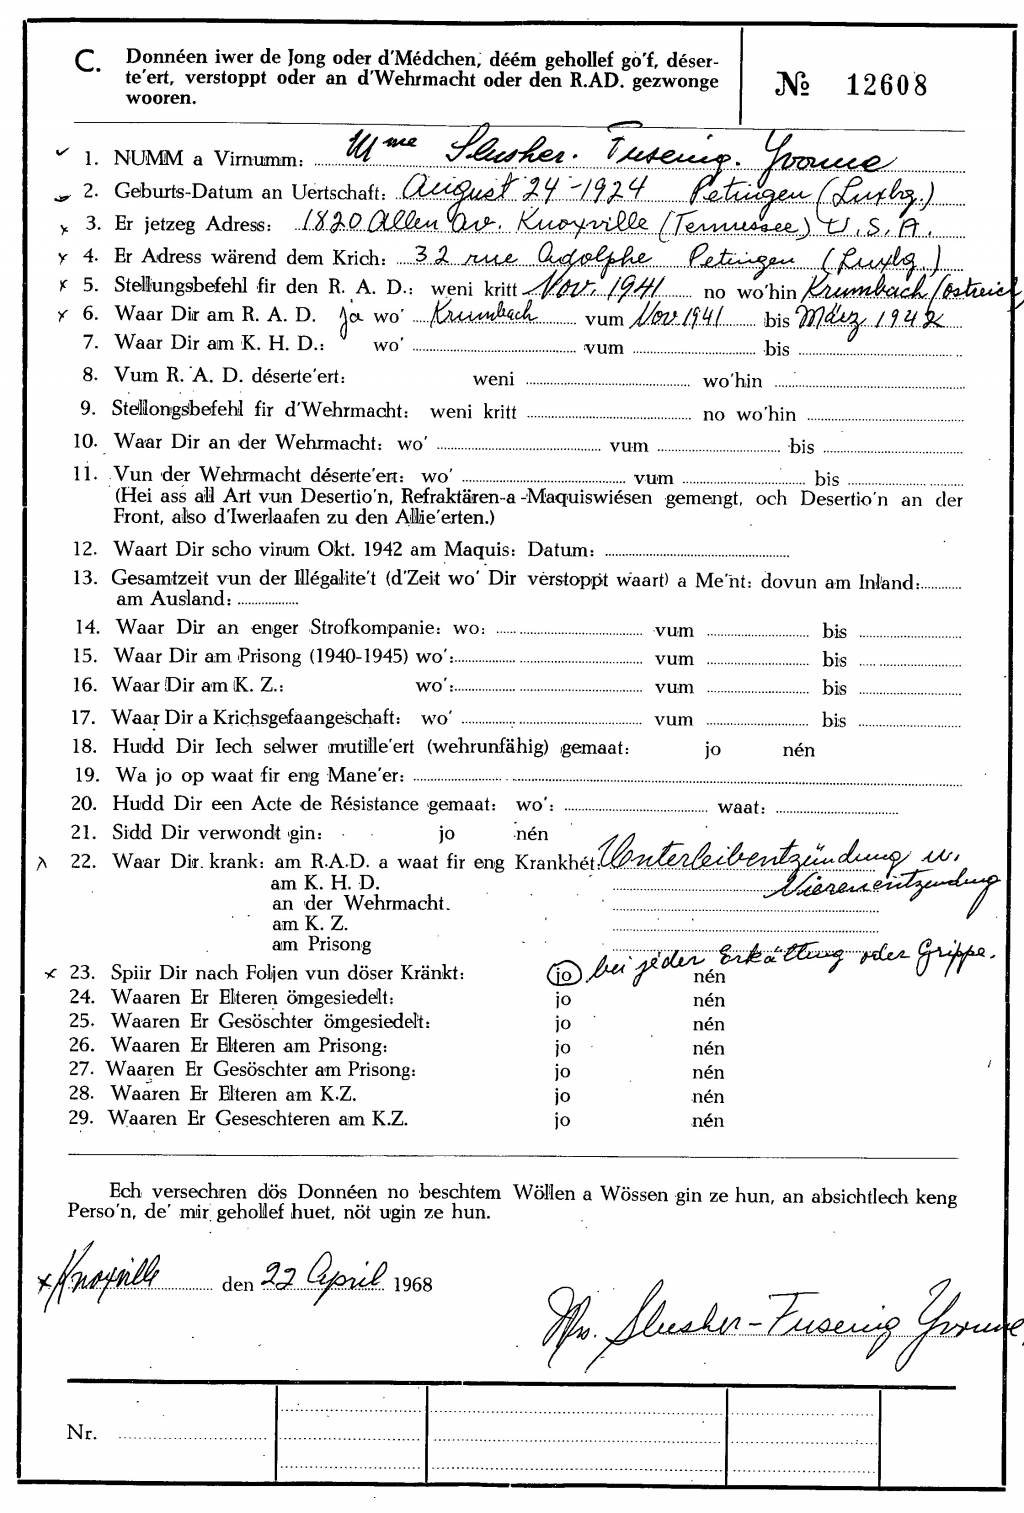 C. Donnéen iwer de Jong oder d'Médchen, déém gehollef go'f, déser-
te'ert, verstoppt oder an d'Wehrmacht oder den R.AD. gezwonge
wooren.
№ 12608
1. NUMM a Virnumm: Mme Slusher. Fusenig. Yvonne
2. Geburts-Datum an Uertschaft: August 24-1924 Petingen (Luxbg.)
3. Er jetzeg Adress: 1820 Allen Av. Knoxville (Tennessee) U.S.A.
4. Er Adress wärend dem Krich: 32 rue Adolphe Petingen (Luxbg.)
5. Stellungsbefehl fir den R. A. D.: weni kritt Nov. 1941 no wo'hin Krumbach/Östreich
6. Waar Dir am R. A. D. ja wo' Krumbach vum Nov 1941 bis März 1942
7. Waar Dir am K. H. D.: wo' vum bis
8. Vum R. A. D. déserte'ert: weni wo'hin
9. Stellongsbefehl fir d'Wehrmacht: weni kritt no wo'hin
10. Waar Dir an der Wehrmacht: wo' vum bis
11. Vun der Wehrmacht déserte'ert: wo' vum bis
(Hei ass all Art vun Desertio'n, Refraktären-a -Maquiswiésen gemengt, och Desertio'n an der
Front, also d'Iwerlaafen zu den Allie'erten.)
12. Waart Dir scho virum Okt. 1942 am Maquis: Datum:
13. Gesamtzeit vun der Illégalite't (d'Zeit wo' Dir verstoppt waart) a Me'nt: dovun am Inland:
am Ausland:
14. Waar Dir an enger Strofkompanie: wo: vum bis
15. Waar Dir am Prisong (1940-1945) wo': vum bis
16. Waar Dir am K. Z.: wo': vum bis
17. Waar Dir a Krichsgefaangeschaft: wo' vum bis
18. Hudd Dir Iech selwer mutille'ert (wehrunfähig) gemaat: jo nén
19. Wa jo op waat fir eng Mane'er:
20. Hudd Dir een Acte de Résistance gemaat: wo': waat:
21. Sidd Dir verwondt gin: jo nén
22. Waar Dir krank: am R.A.D. a waat fir eng Krankhét: Unterleibentzündung u.
am K. H. D. Nierenentzendung
an der Wehrmacht.
am K. Z.
am Prisong
23. Spiir Dir nach Foljen vun döser Kränkt: jo bei jeder Erkältung oder Grippe. nén
24. Waaren Er Elteren ömgesiedelt: jo nén
25. Waaren Er Gesöschter ömgesiedelt: jo nén
26. Waaren Er Elteren am Prisong: jo nén
27. Waaren Er Gesöschter am Prisong: jo nén
28. Waaren Er Elteren am K.Z. jo nén
29. Waaren Er Geseschteren am K.Z. jo nén
Ech versechren dös Donnéen no beschtem Wöllen a Wössen gin ze hun, an absichtlech keng
Perso'n, de' mir gehollef huet, nöt ugin ze hun.
Knoxville den 22 April 1968
Mrs. Slusher-Fusenig Yvonne
Nr.